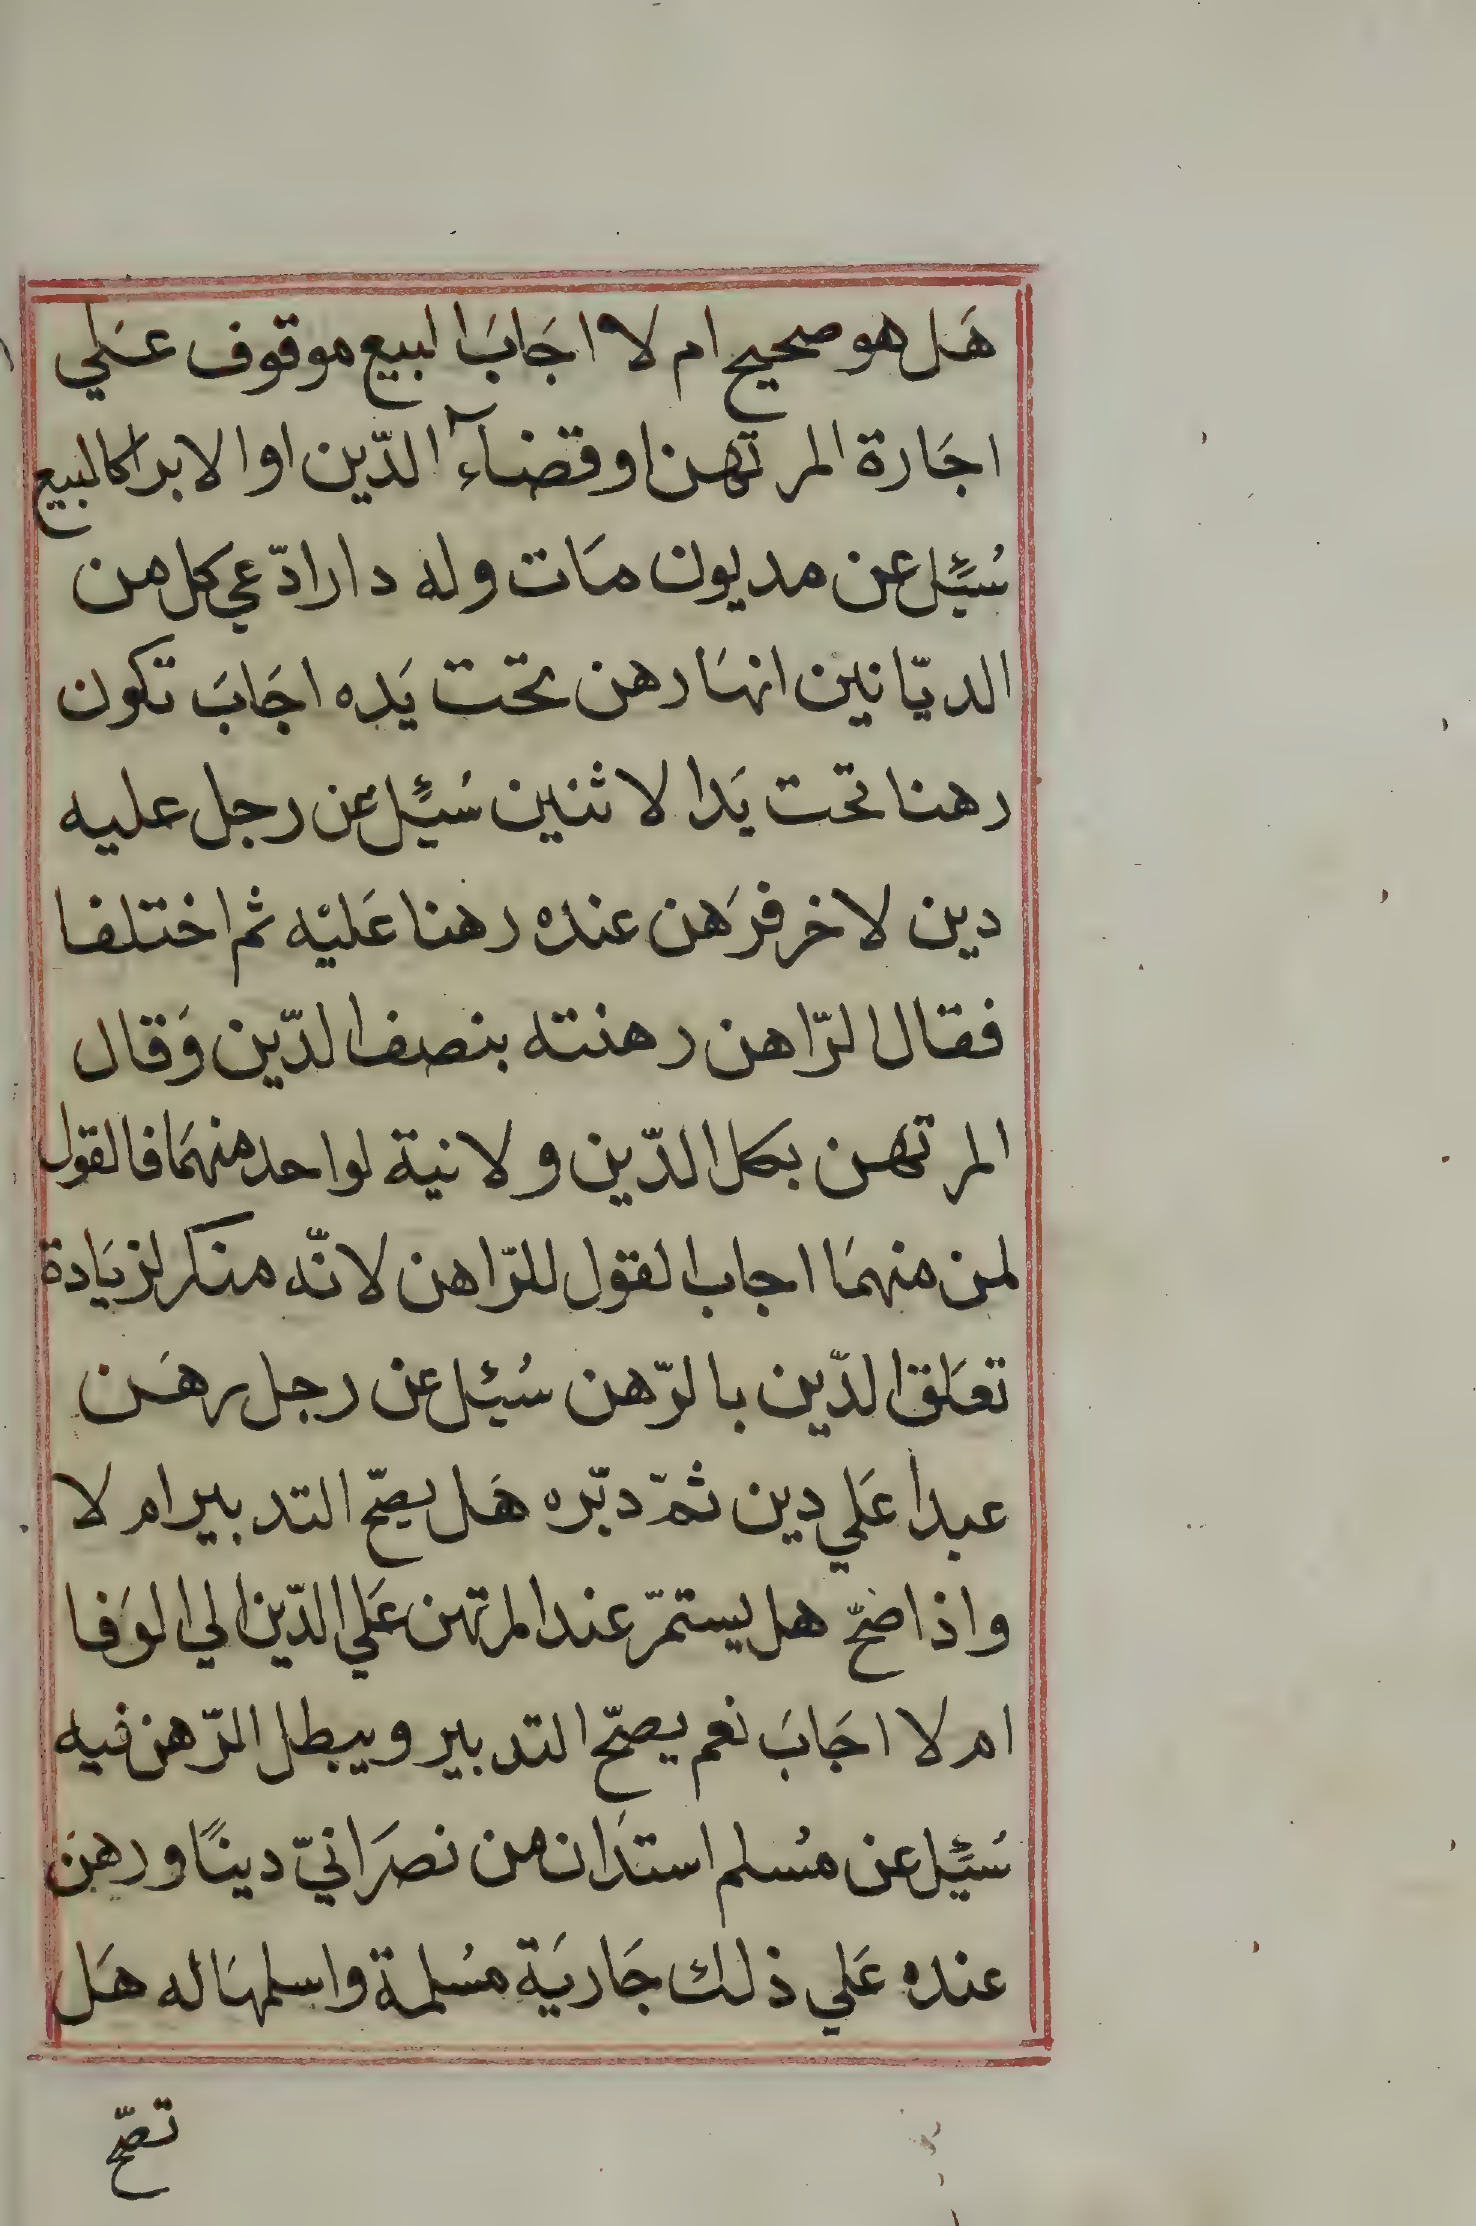 هَل هو صحيح ام لا اجَابَ البيع موقوف عَلي
اجَارة المرتهن او قضآء الدّين او الابرا كالبيع
سُئِل عن مديون مَات وله دار ادّعي كل من
الديّانين انهَا رهن تحت يَده اجَابَ تكون
رهنا تحت يَد الاثنين سُئِل عن رجل عليه
دين لاخر فرَهن عنده رهنا عَليْه ثم اختلفا
فقال الرّاهن رهنته بنصف الدّين وَقال
المرتهن بكل الدّين ولا نية لواحد منهمَا فالقول
لمن منهمَا اجاب القول للرّاهن لانّه منكر لزيَادة
تعَلق الدّين بالرّهن سُئِل عن رجل رهَن
عبدا عَلي دين ثمّ دبّره هَل يصحّ التدبير ام لا
واذا صَحّ هل يستمرّ عند المرتهن عَلي الدّين الي الوَفا
ام لا اجَابَ نعم يصحّ التدبير ويبطل الرّهن فيه
سُئِل عن مُسلم استدَان من نصرَانيّ دينًا ورهن
عنده عَلي ذلك جَاريَة مسُلمة واسلمهَا له هَل
تصحّ